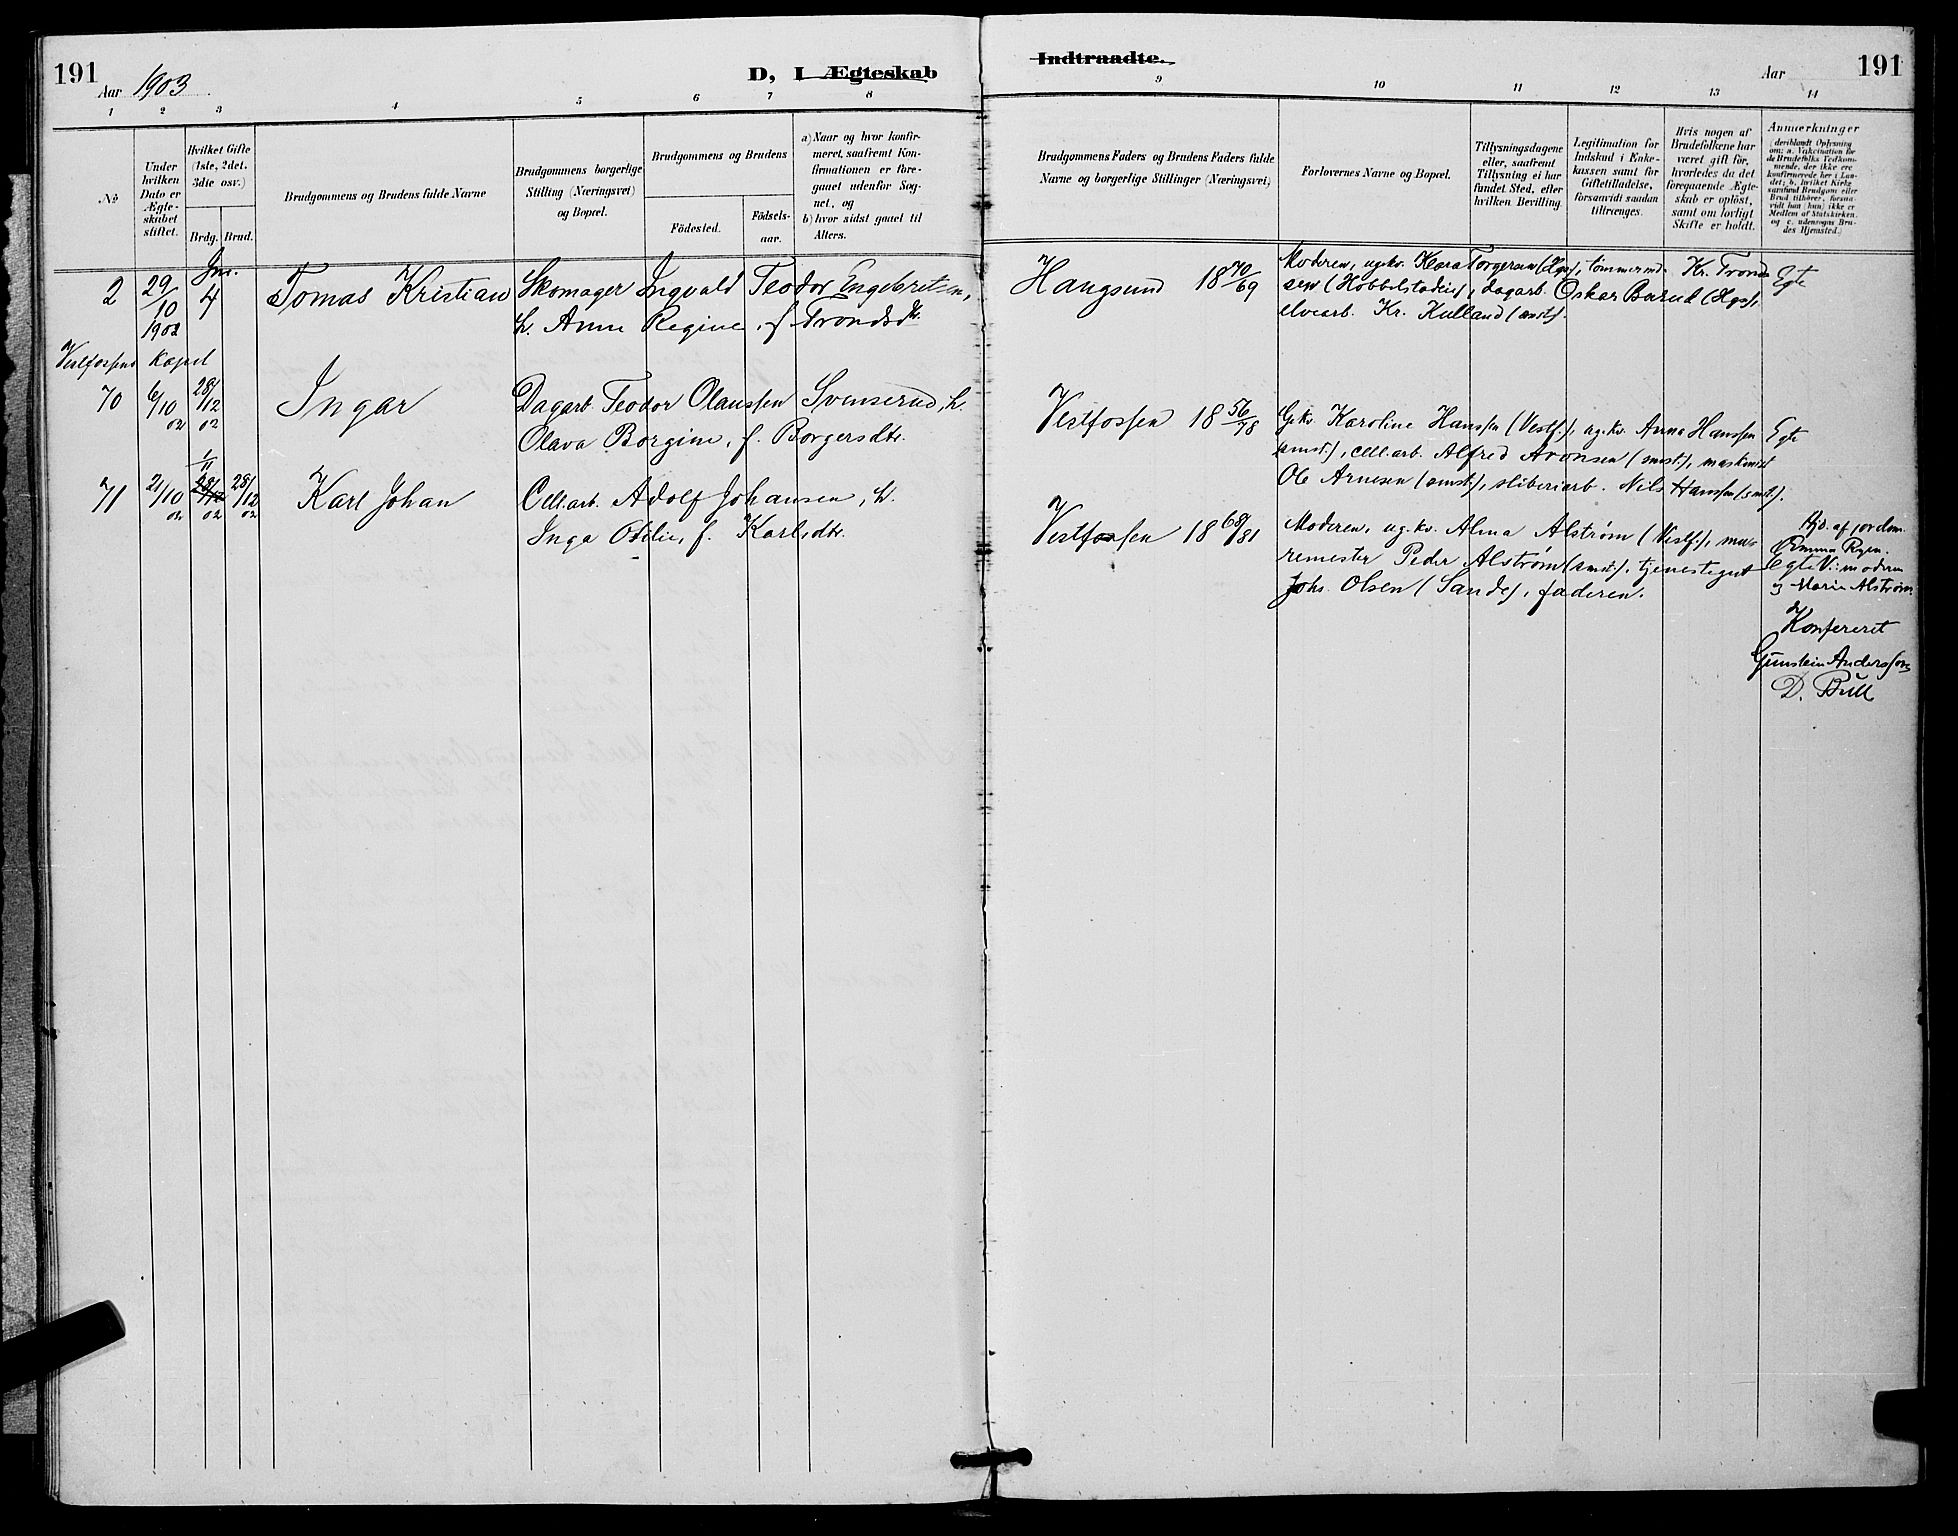 191
Aar 1903
D, I Ægteskab
Indtraadte.
Aar
191
1 2 3 4 5 6 7 8 9 10 11 12 13 14
No
Under
hvilken
Dato er
Ægte-
skabet
stiftet.
Hvilket Gifte
(1ste, 2det.
3die osv.)
Brdg. Brud.
Brudgommens og Brudens fulde Navne
Brudgommens borgerlige
Stilling (Næringsvei)
og Bopæl.
Brudgommens og Brudens
Födested.
Födsels-
aar.
a) Naar og hvor konfir-
meret, saafremt Kon-
firmationen er fore-
gaaet udenfor Sog-
net, og
b) hvor sidst gaaet til
Alters.
Brudgommens Faders og Brudens Faders fulde
Navne og borgerlige Stillinger (Næringsvei)
Forlovernes Navne og Bopæl.
Tillysningsdagene
eller, saafremt
Tillysning ei har
fundet Sted, efter
hvilken Bevilling.
Legitimation for
Indskud i Enke-
kassen samt for
Giftetilladelse,
forsaavidt saadan
tiltrænges.
Hvis nogen af
Brudefolkene har
været gift för,
hvorledes da det
foregaaende Ægte-
skab er oplöst,
samt om lovligt
Skifte er holdt.
Anmærkninger
(deriblandt Oplysning
om: a. Vakcination for
de Brudefolks Vedkom-
mende, der ikke ere
konfirmerede her i Lan-
det; b. hvilket Kirke-
samfund Brudgom eller
Brud tilhörer, forsaa-
vidt han (hun) ikke er
Medlem af Statskirken,
og c. udensogns Bru-
des Hjemsted.)
Jan.
2 29/10 1902 4 Tomas Kristian Skomager Ingvald Teodor Engebretsen,
h. Anne Regine, f. Trondsdtr.
Haugsund 18 70/69
Moderen, ug.kv. Kara Torgersen (Hgs), tømmermd. Kr. Trond-
sen (Hobbelstadeie), dagarb. Oskar Borud (Hgs),
elvearb. Kr. Kulland (smst).
Egte
Vestfossens Kapel
70 6/10 02 28/12 02 Ingar Dagarb. Teodor Olaussen Svenserud, h.
Olava Borgine, f. Borgersdtr.
Vestfossen 18 56/78
G.kv. Karoline Hanssen (Vestf.), ug.kv. Anna Hanssen
(smst.), cell.arb. Alfred Aronsen (smst.), maskinist
Ole Arnesen (smst), sliberiarb. Nils Hanssen (smst).
Egte
71 21/10 02 1/11 28/12 02 28/12 02 Karl Johan Cell.arb. Adolf Johansen, h.
Inga Otilie, f. Karlsdtr.
Vestfossen 18 68/81
Moderen, ug.kv. Alma Alstrøm (Vestf.), mu-
remester Peder Alstrøm (smst.), tjenestegut
Johs. Olsen (Sande), faderen.
Hjd. af jordm.
Emma Ryen.
Egte V: moderen
og Marie Alstrøm
Konfereret
Gunstein Anderssen
D. Bull